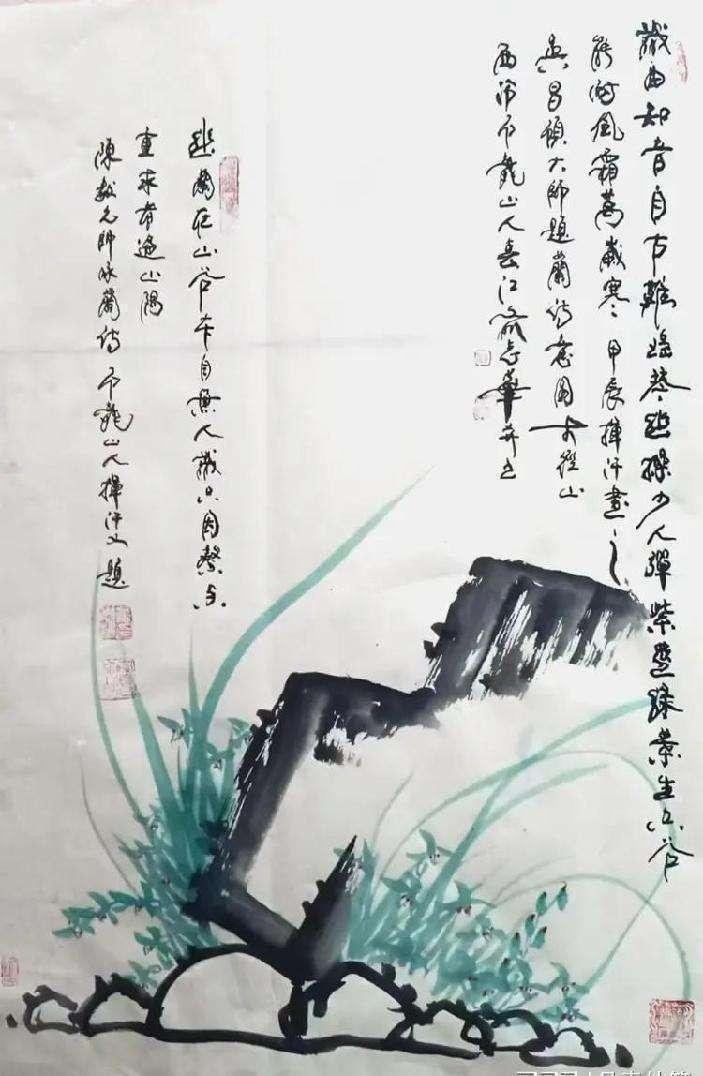 識曲知音自古難瑤琴幽操少人彈紫莖綠葉生空谷
能耐風霜萬歲寒 甲辰揮汗畫之
吳昌碩大師題蘭詩意圖 古徑山
西 龍山人 江 志華并
幽蘭在山谷本自無人識只因馨香
重求者遍山隅
陳毅元帥咏蘭詩 龍山人揮汗又題